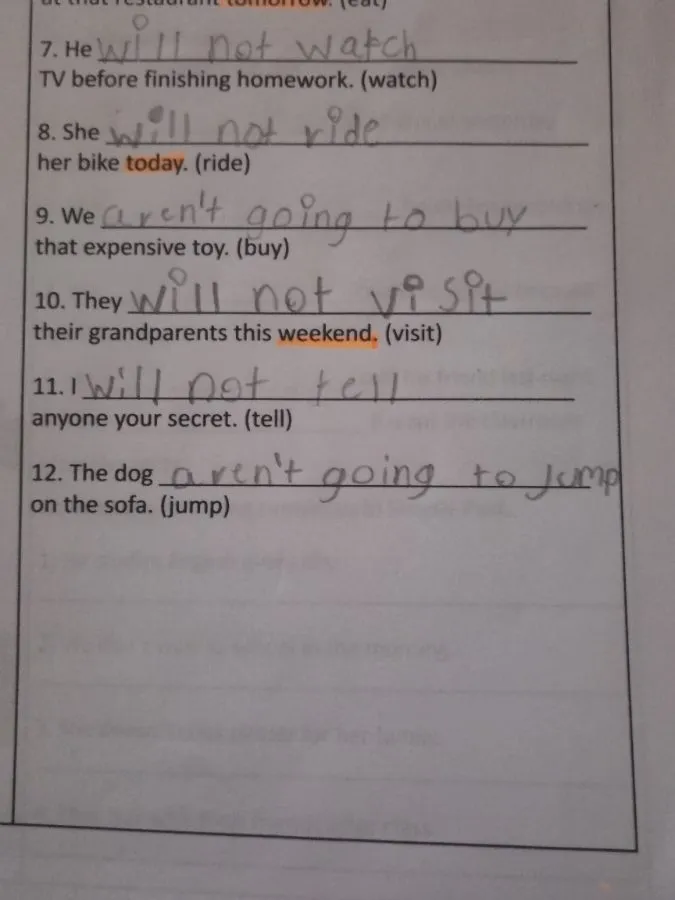 at that restaurant tomorrow. (eat)
7. He will not watch
TV before finishing homework. (watch)
8. She will not ride
her bike today. (ride)
9. We aren't going to buy
that expensive toy. (buy)
10. They will not visit
their grandparents this weekend. (visit)
11. I will not tell
anyone your secret. (tell)
12. The dog aren't going to Jump
on the sofa. (jump)